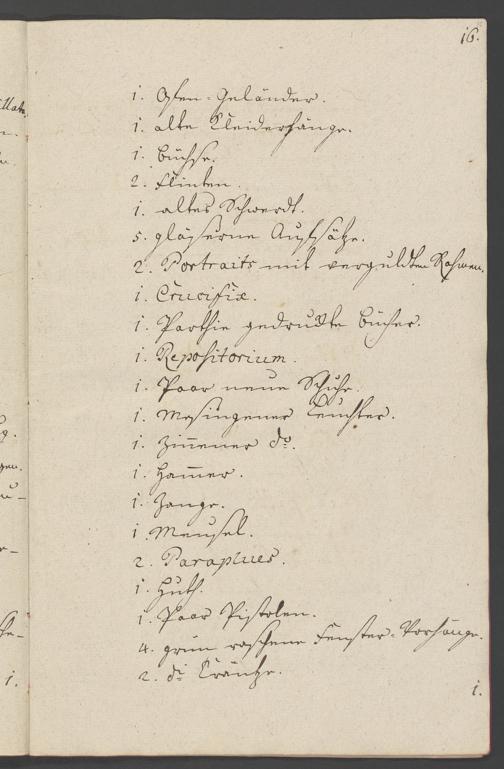 16.
1. Ofen-Geländer.
1. alte Kleiderhänge.
1. Büchse.
2. Flinten.
1. altes Schwerdt.
5. gläserne Aufsätze.
2. Portraits mit verguldten Rahmen.
1. Crucifix.
1. Parthie gedruckte Bücher.
1. Repositorium.
1. Paar neue Schuhe.
1. Messingener Leuchter.
1. Zin̄ener do.
1. Ham̄er.
1. Zange.
1. Meusel.
2. Parapluies.
1. Huth.
1. Paar Pistolen.
4. grün raschene Fenster-Vorhänge.
2. di Kräntze.
1.